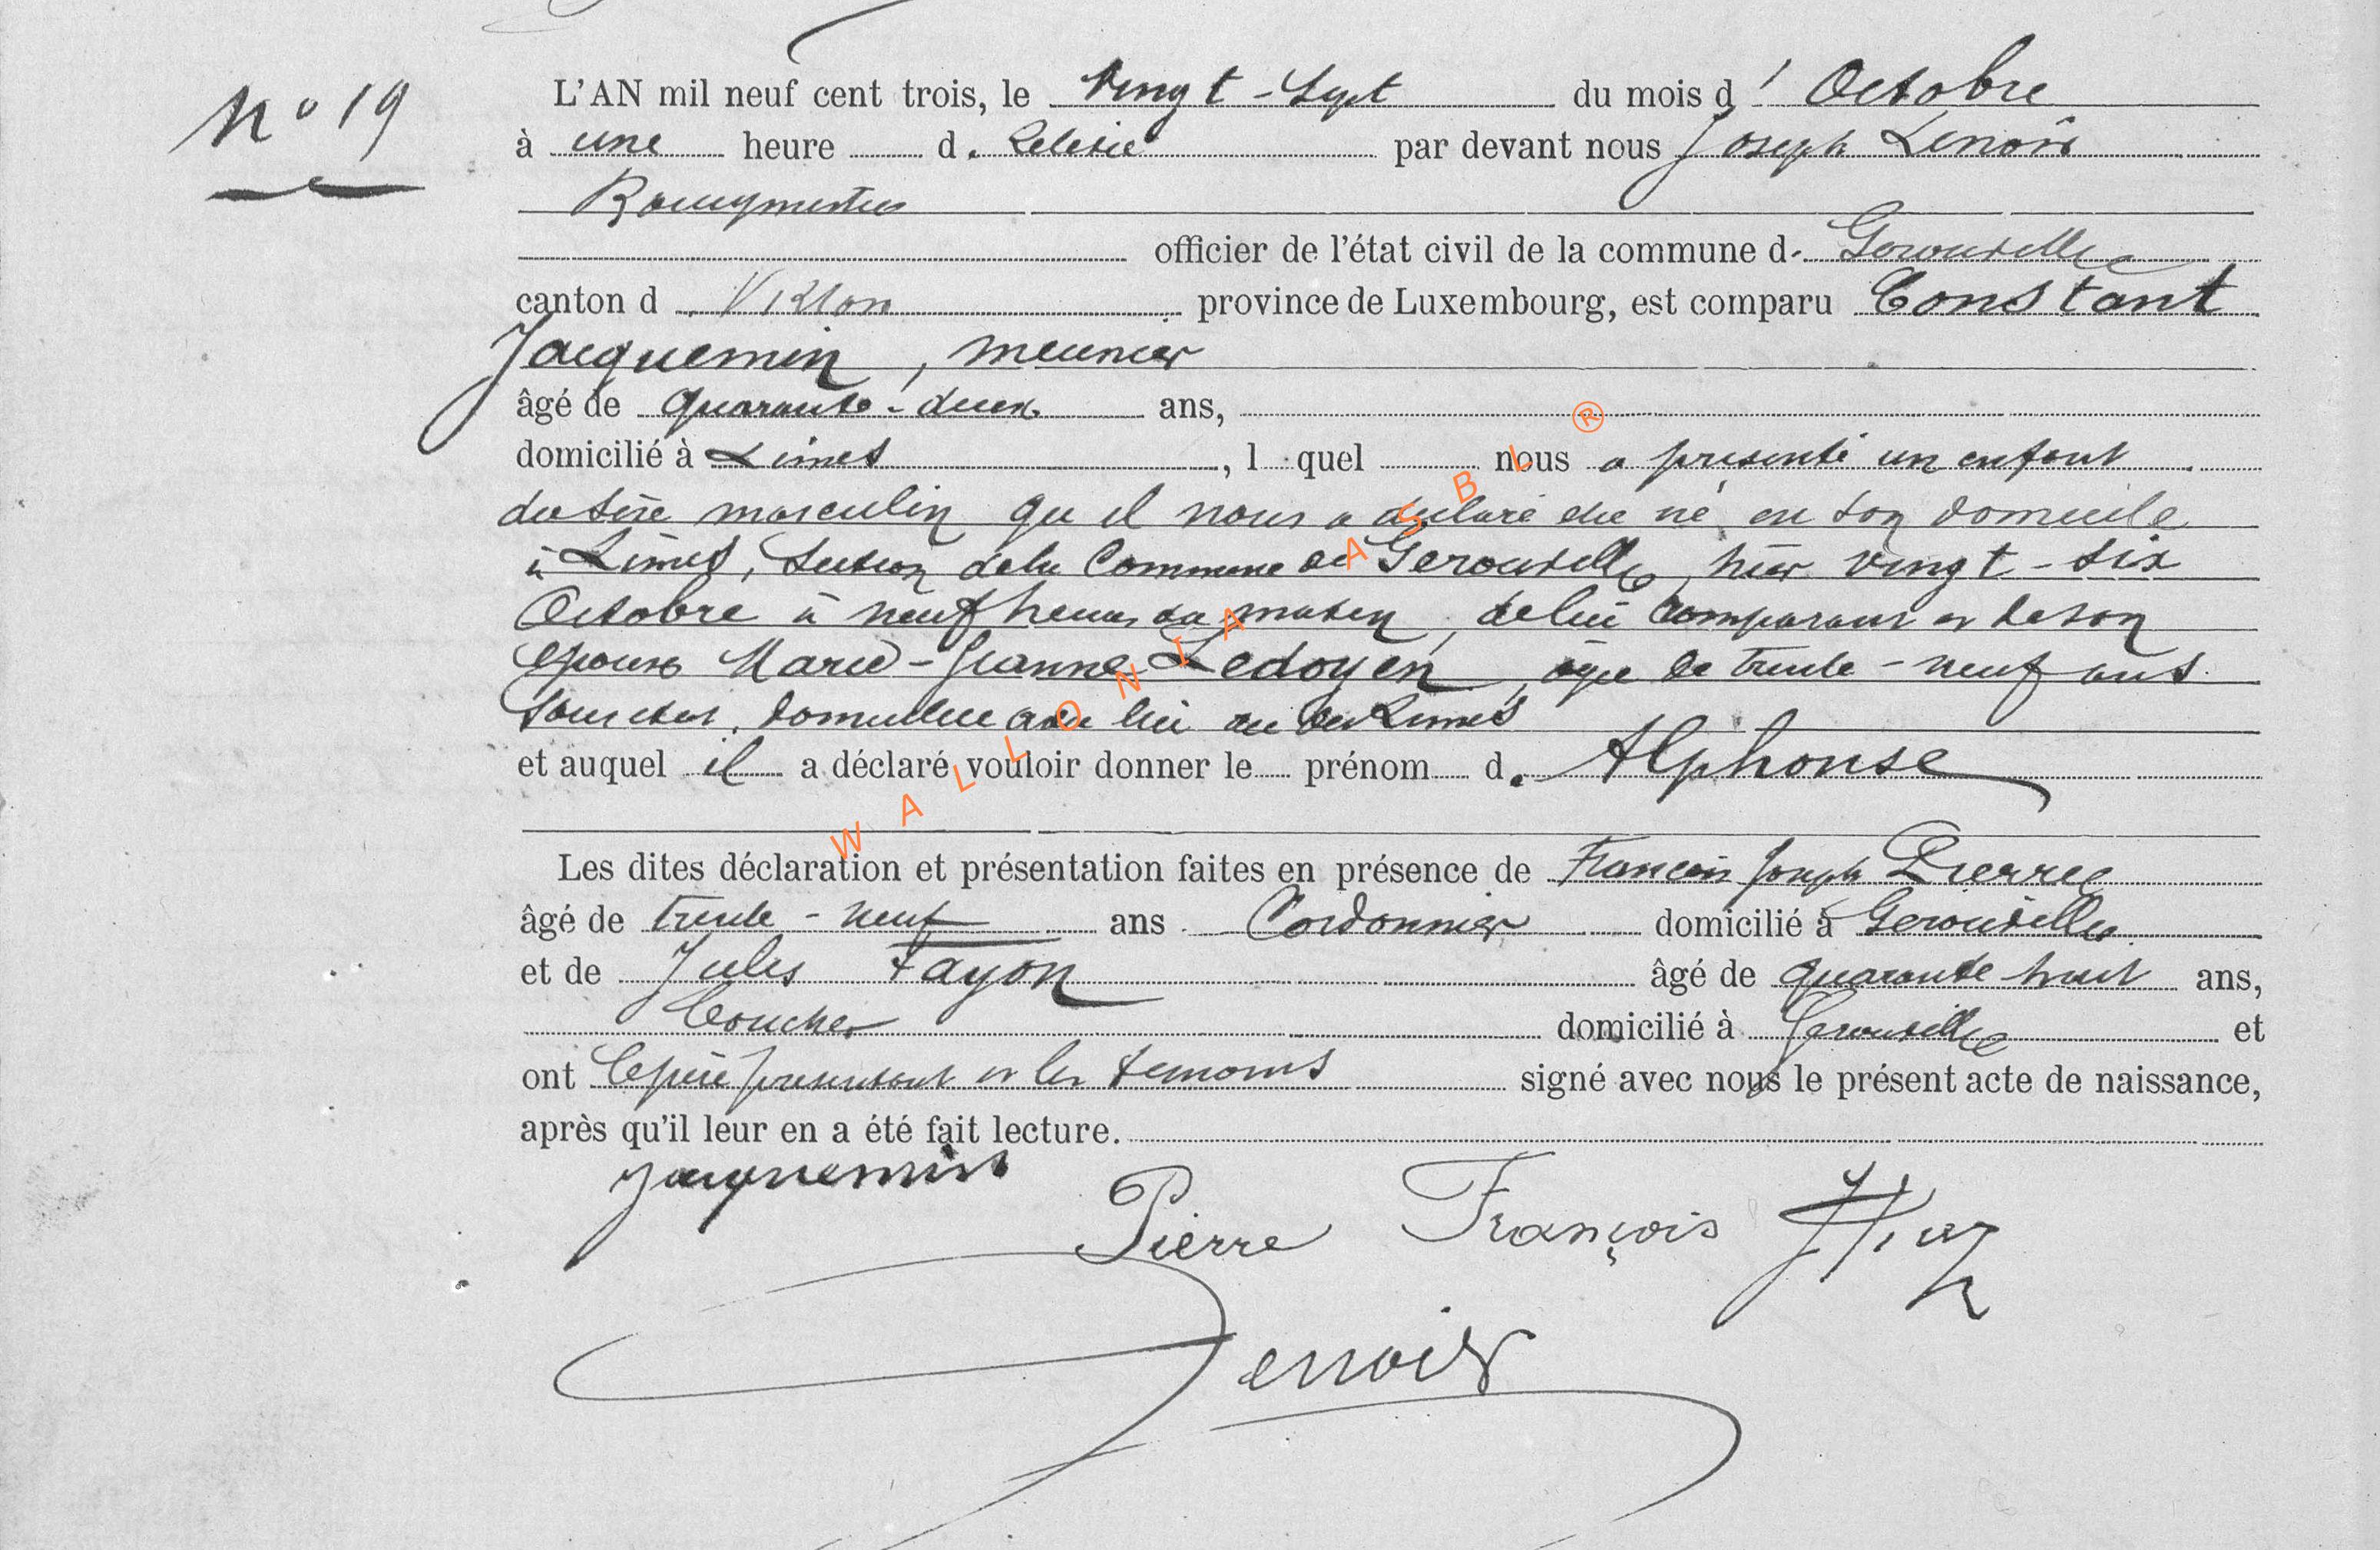 N° 19
L'AN mil neuf cent trois, le Vingt-Sept du mois d'Octobre
à une heure d. Relevée par devant nous Joseph Lenoir
Bourgmestre
officier de l'état civil de la commune d. Gerouville
canton d. Virton province de Luxembourg, est comparu Constant
Jacquemin, meunier
âgé de quarante-deux ans,
domicilié à Limes, l quel nous a présenté un enfant
du sexe masculin qu'il nous a déclaré être né en son domicile
à Limes, Section de la Commune de Gerouville, hier vingt-six
Octobre à neuf heures du matin, de lui comparant et de son
épouse Marie-Jeanne Ledoyen, âgée de trente-neuf ans
domiciliée avec lui Limes
et auquel il a déclaré vouloir donner le prénom d. Alphonse
Les dites déclaration et présentation faites en présence de François Joseph Pierre
âgé de trente-neuf ans Cordonnier domicilié à Gerouville
et de Jules Fayon âgé de quarante huit ans,
domicilié à Gerouville et
ont le père présentant et les témoins signé avec nous le présent acte de naissance,
après qu'il leur en a été fait lecture.
Jacquemin
Pierre François
Lenoir
WALLONIA ASBL ®